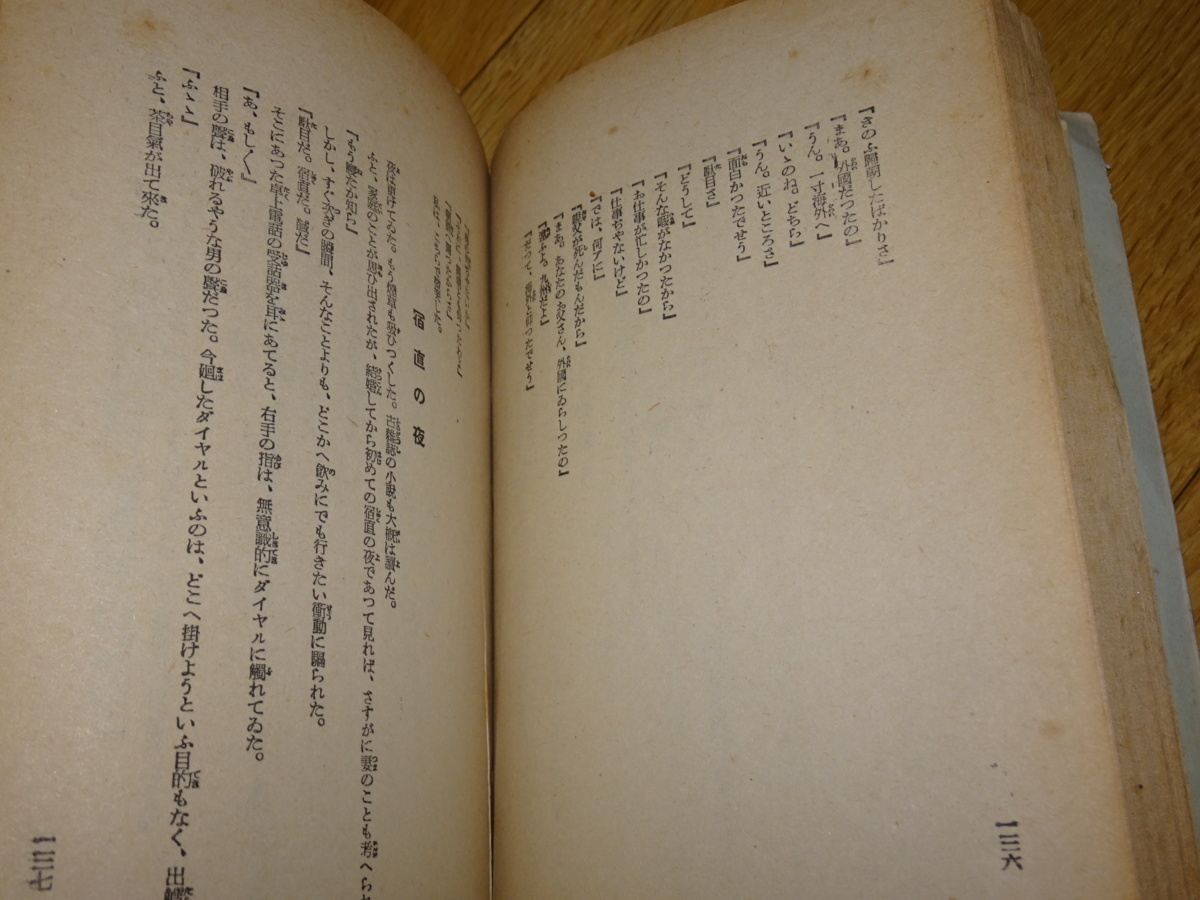 『きのふ歸朝したばかりさ』
『まあ。外國だつたの』
『うん。一寸海外へ』
『いゝのね。どちら』
『うん。近いところさ』
『面白かつたでせう』
『駄目さ』
『どうして』
『そんな暇がなかつたから』
『お仕事が忙しかつたの』
『仕事ぢやないけど』
『では、何アに』
『親父が死んだもんだから』
『まあ。あなたのお父さん、外國にゐらしつたの』
『違ふよ。九州だよ』
『だつて、海外と仰つたでせう』
一三六
宿直の夜
夜は更けてゐた。もう煙草も吸ひつくした。古雜誌の小説も大概は讀んだ。
ふと、家庭のことが思ひ出されたが、結婚してから初めての宿直の夜であつて見れば、さすがに妻のことも考へられ
『もう寢たか知ら』
しかし、すぐ次ぎの瞬間、そんなことよりも、どこかへ飮みにでも行きたい衝動に驅られた。
『駄目だ。宿直だ。駄目だ』
そこにあつた卓上電話の受話器を耳にあてると、右手の指は、無意識的にダイヤルに觸れてゐた。
『あ、もし〳〵』
相手の聲は、破れるやうな男の聲だつた。今廻したダイヤルといふのは、どこへ掛けようといふ目的もなく、出鱈
『ふゝゝ』
ふと、茶目氣が出て來た。
一三七